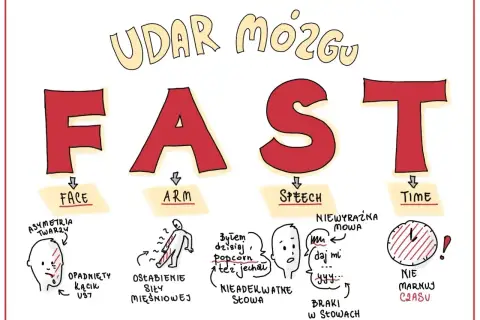 UDAR MÓZGU
FAST
FACE
ARM
SPEECH
TIME
ASYMETRIA
TWARZY
OPADNIĘTY
KĄCIK
UST
OSŁABIENIE
SIŁY
MIĘŚNIOWEJ
Byłem
dzisiaj
popcorn
też jechali
NIEADEKWATNE
SŁOWA
NIEWYRAŹNA
MOWA
daj mi
...yyy...
BRAKI
W SŁOWACH
!
NIE
MARNUJ
CZASU